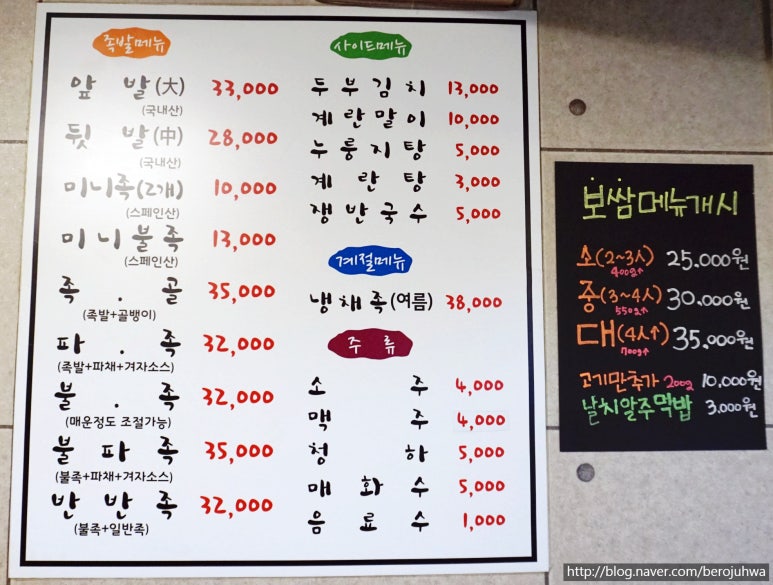 족발메뉴
앞 발(大) 33,000
(국내산)
뒷 발(中) 28,000
(국내산)
미니족(2개) 10,000
(스페인산)
미니불족 13,000
(스페인산)
족 . 골 35,000
(족발+골뱅이)
파 . 족 32,000
(족발+파채+겨자소스)
불 . 족 32,000
(매운정도 조절가능)
불파족 35,000
(불족+파채+겨자소스)
반반족 32,000
(불족+일반족)
사이드메뉴
두부김치 13,000
계란말이 10,000
누룽지탕 5,000
계란탕 3,000
쟁반국수 5,000
계절메뉴
냉채족(여름) 38,000
주류
소주 4,000
맥주 4,000
청하 5,000
매화수 5,000
음료수 1,000
보쌈메뉴개시
소(2~3人) 25,000원
400g↑
중(3~4人) 30,000원
550g↑
대(4人↑) 35,000원
700g↑
고기만추가 200g 10,000원
날치알주먹밥 3,000원
http://blog.naver.com/berojuhwa